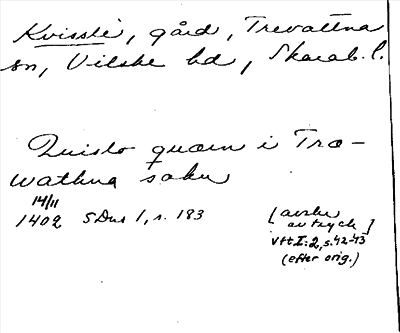 Kvisslé, gård, Trevattna
sn, Vilske hd, Skarab. l.
Quislo quærn i Træ-
wathna sokn
14/11
1402 SDns 1, s. 183
[avskr
av tryck]
Vtt I: 2, s. 42-43
(efter orig.)